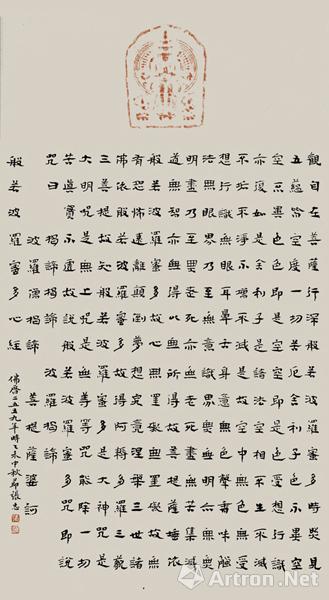 觀自在菩薩行深般若波羅蜜多時照見
五蘊皆空度一切苦厄舍利子色不異空
空不異色色即是空空即是色受想行識
亦復如是舍利子是諸法空相不生不滅
不垢不淨不增不減是故空中無色無受
想行識無眼耳鼻舌身意無色聲香味觸
法無眼界乃至無意識界無無明亦無無
明盡乃至無老死亦無老死盡無苦集滅
道無智亦無得以無所得故菩提薩埵依
般若波羅蜜多故心無罣礙無罣礙故無
有恐怖遠離顛倒夢想究竟涅槃三世諸
佛依般若波羅蜜多故得阿耨多羅三藐
三菩提故知般若波羅蜜多是大神咒是
大明咒是無上咒是無等等咒能除一切
苦真實不虛故說般若波羅蜜多咒即說
咒曰 揭諦 揭諦 波羅揭諦
波羅僧揭諦 菩提薩婆訶
般若波羅蜜多心經
佛曆二五五九年時乙未中秋節張
Artron.Net